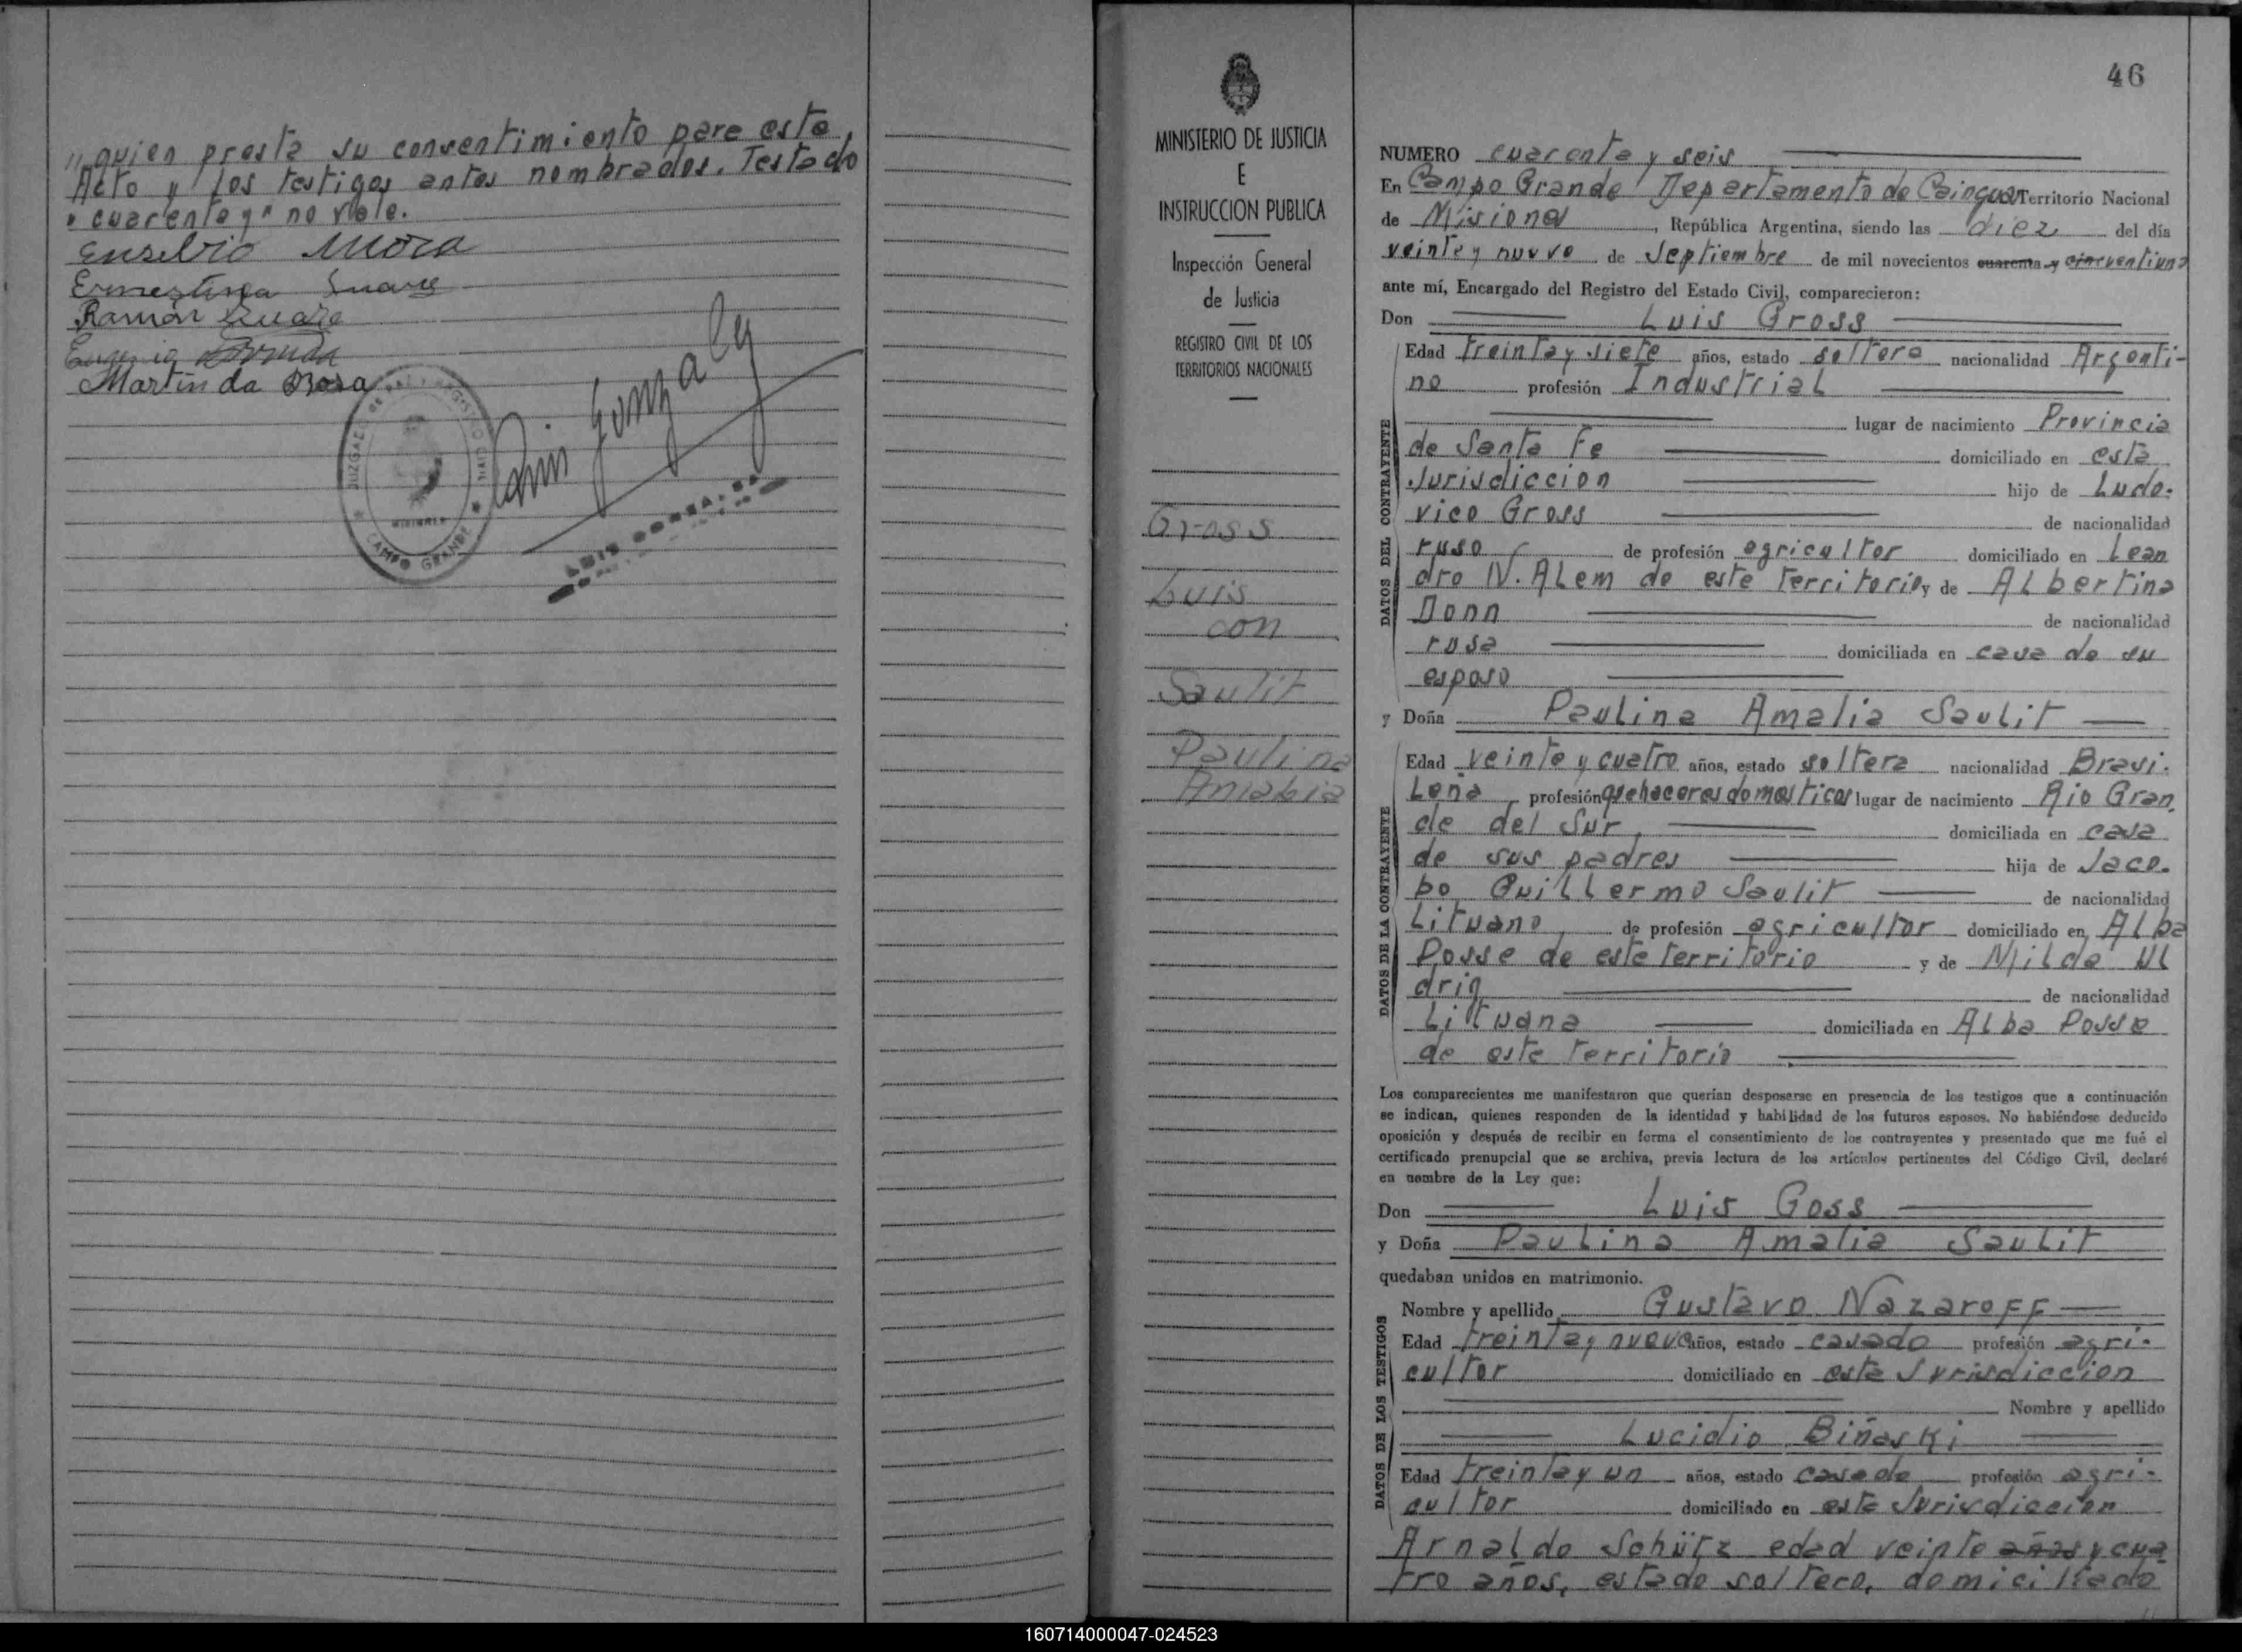 " quien presta su consentimiento para este
Acto y los testigos antes nombrados. Testado
"cuarenta y" no vale.
Eusebio Mora
Ernestina Suarez
Ramón
Eugenio
Martin da Rosa
JUZGADO DE PAZ Y REGISTRO CIVIL
MISIONES
CAMPO GRANDE
Luis Gonzalez
LUIS GONZALEZ
MINISTERIO DE JUSTICIA
E
INSTRUCCION PUBLICA
Inspección General
de Justicia
REGISTRO CIVIL DE LOS
TERRITORIOS NACIONALES
Gross
Luis
con
Saulit
Paulina
Amalia
46
NUMERO cuarenta y seis
En Campo Grande Departamento de Cainguas Territorio Nacional
de Misiones, República Argentina, siendo las diez del día
veinte y nueve de Septiembre de mil novecientos cuarenta y cincuentiuno
ante mí, Encargado del Registro del Estado Civil, comparecieron:
Don Luis Gross
DATOS DEL CONTRAYENTE
Edad treinta y siete años, estado soltero nacionalidad Argenti-
no profesión Industrial
lugar de nacimiento Provincia
de Santa Fe domiciliado en esta
Jurisdiccion hijo de Ludo-
vico Gross de nacionalidad
ruso de profesión agricultor domiciliado en Lean
dro N. Alem de este territorio y de Albertina
Donn de nacionalidad
rusa domiciliada en casa de su
esposo
y Doña Paulina Amalia Saulit
DATOS DE LA CONTRAYENTE
Edad veinte y cuatro años, estado soltera nacionalidad Brasi-
leña profesión quehaceres domesticos lugar de nacimiento Rio Gran
de del Sur domiciliada en casa
de sus padres hija de Jaco-
bo Guillermo Saulit de nacionalidad
Lituano de profesión agricultor domiciliado en Alba
Posse de este territorio y de Milda Ul
drig de nacionalidad
Lituana domiciliada en Alba Posse
de este territorio
Los comparecientes me manifestaron que querían desposarse en presencia de los testigos que a continuación
se indican, quienes responden de la identidad y habilidad de los futuros esposos. No habiéndose deducido
oposición y después de recibir en forma el consentimiento de los contrayentes y presentado que me fué el
certificado prenupcial que se archiva, previa lectura de los artículos pertinentes del Código Civil, declaré
en nombre de la Ley que:
Don Luis Goss
y Doña Paulina Amalia Saulit
quedaban unidos en matrimonio.
DATOS DE LOS TESTIGOS
Nombre y apellido Gustavo Nazaroff
Edad treinta y nueve años, estado casado profesión agri-
cultor domiciliado en esta Jurisdiccion
Nombre y apellido
Lucidio Biñaski
Edad treinta y un años, estado casado profesión agri-
cultor domiciliado en esta Jurisdiccion
Arnaldo Schütz edad veinte años y cua
tro años, estado soltero, domiciliado
160714000047-024523